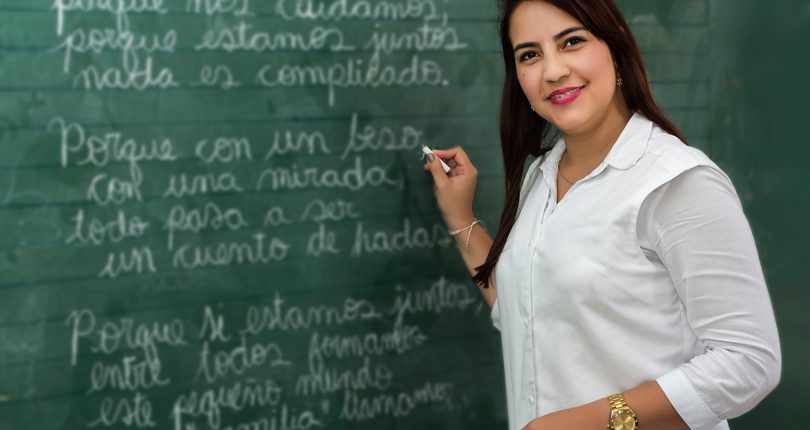 porque nos cuidamos;
porque estamos juntos
nada es complicado.
Porque con un beso,
con una mirada,
todo pasa a ser
un cuento de hadas
Porque si estamos juntos,
entre todos formamos
este pequeño mundo
"familia" llamamo;